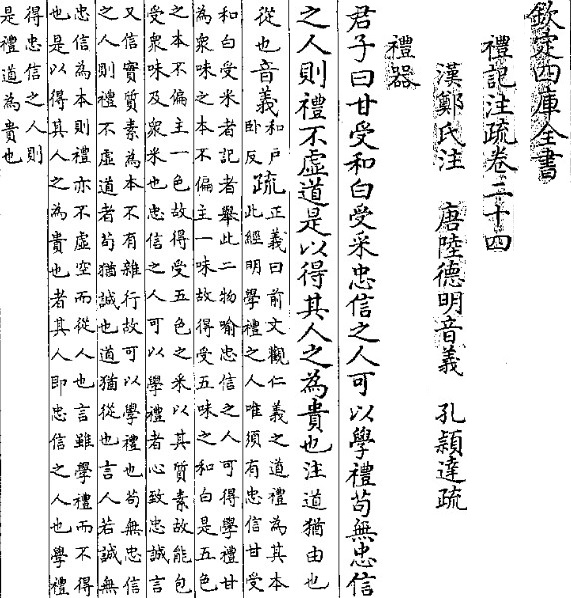 欽定四庫全書
禮記注疏卷二十四
漢鄭氏注 唐陸德明音義 孔穎達疏
禮器
君子曰甘受和白受采忠信之人可以學禮苟無忠信
之人則禮不虛道是以得其人之為貴也注道猶由也
從也音義和戶卧反疏正義曰前文觀仁義之道禮為其本
此經明學禮之人唯須有忠信甘受
和白受采者記者舉此二物喻忠信之人可得學禮甘
為衆味之本不偏主一味故得受五味之和白是五色
之本不偏主一色故得受五色之采以其質素故能包
受衆味及衆采也忠信之人可以學禮者心致忠誠言
又信實質素為本不有雜行故可以學禮也苟無忠信
之人則禮不虛道者苟猶誠也道猶從也言人若誠無
忠信為本則禮亦不虛空而從人也言雖學禮而不得
也是以得其人之為貴也者其人即忠信之人也學禮
得忠信之人則
是禮道為貴也